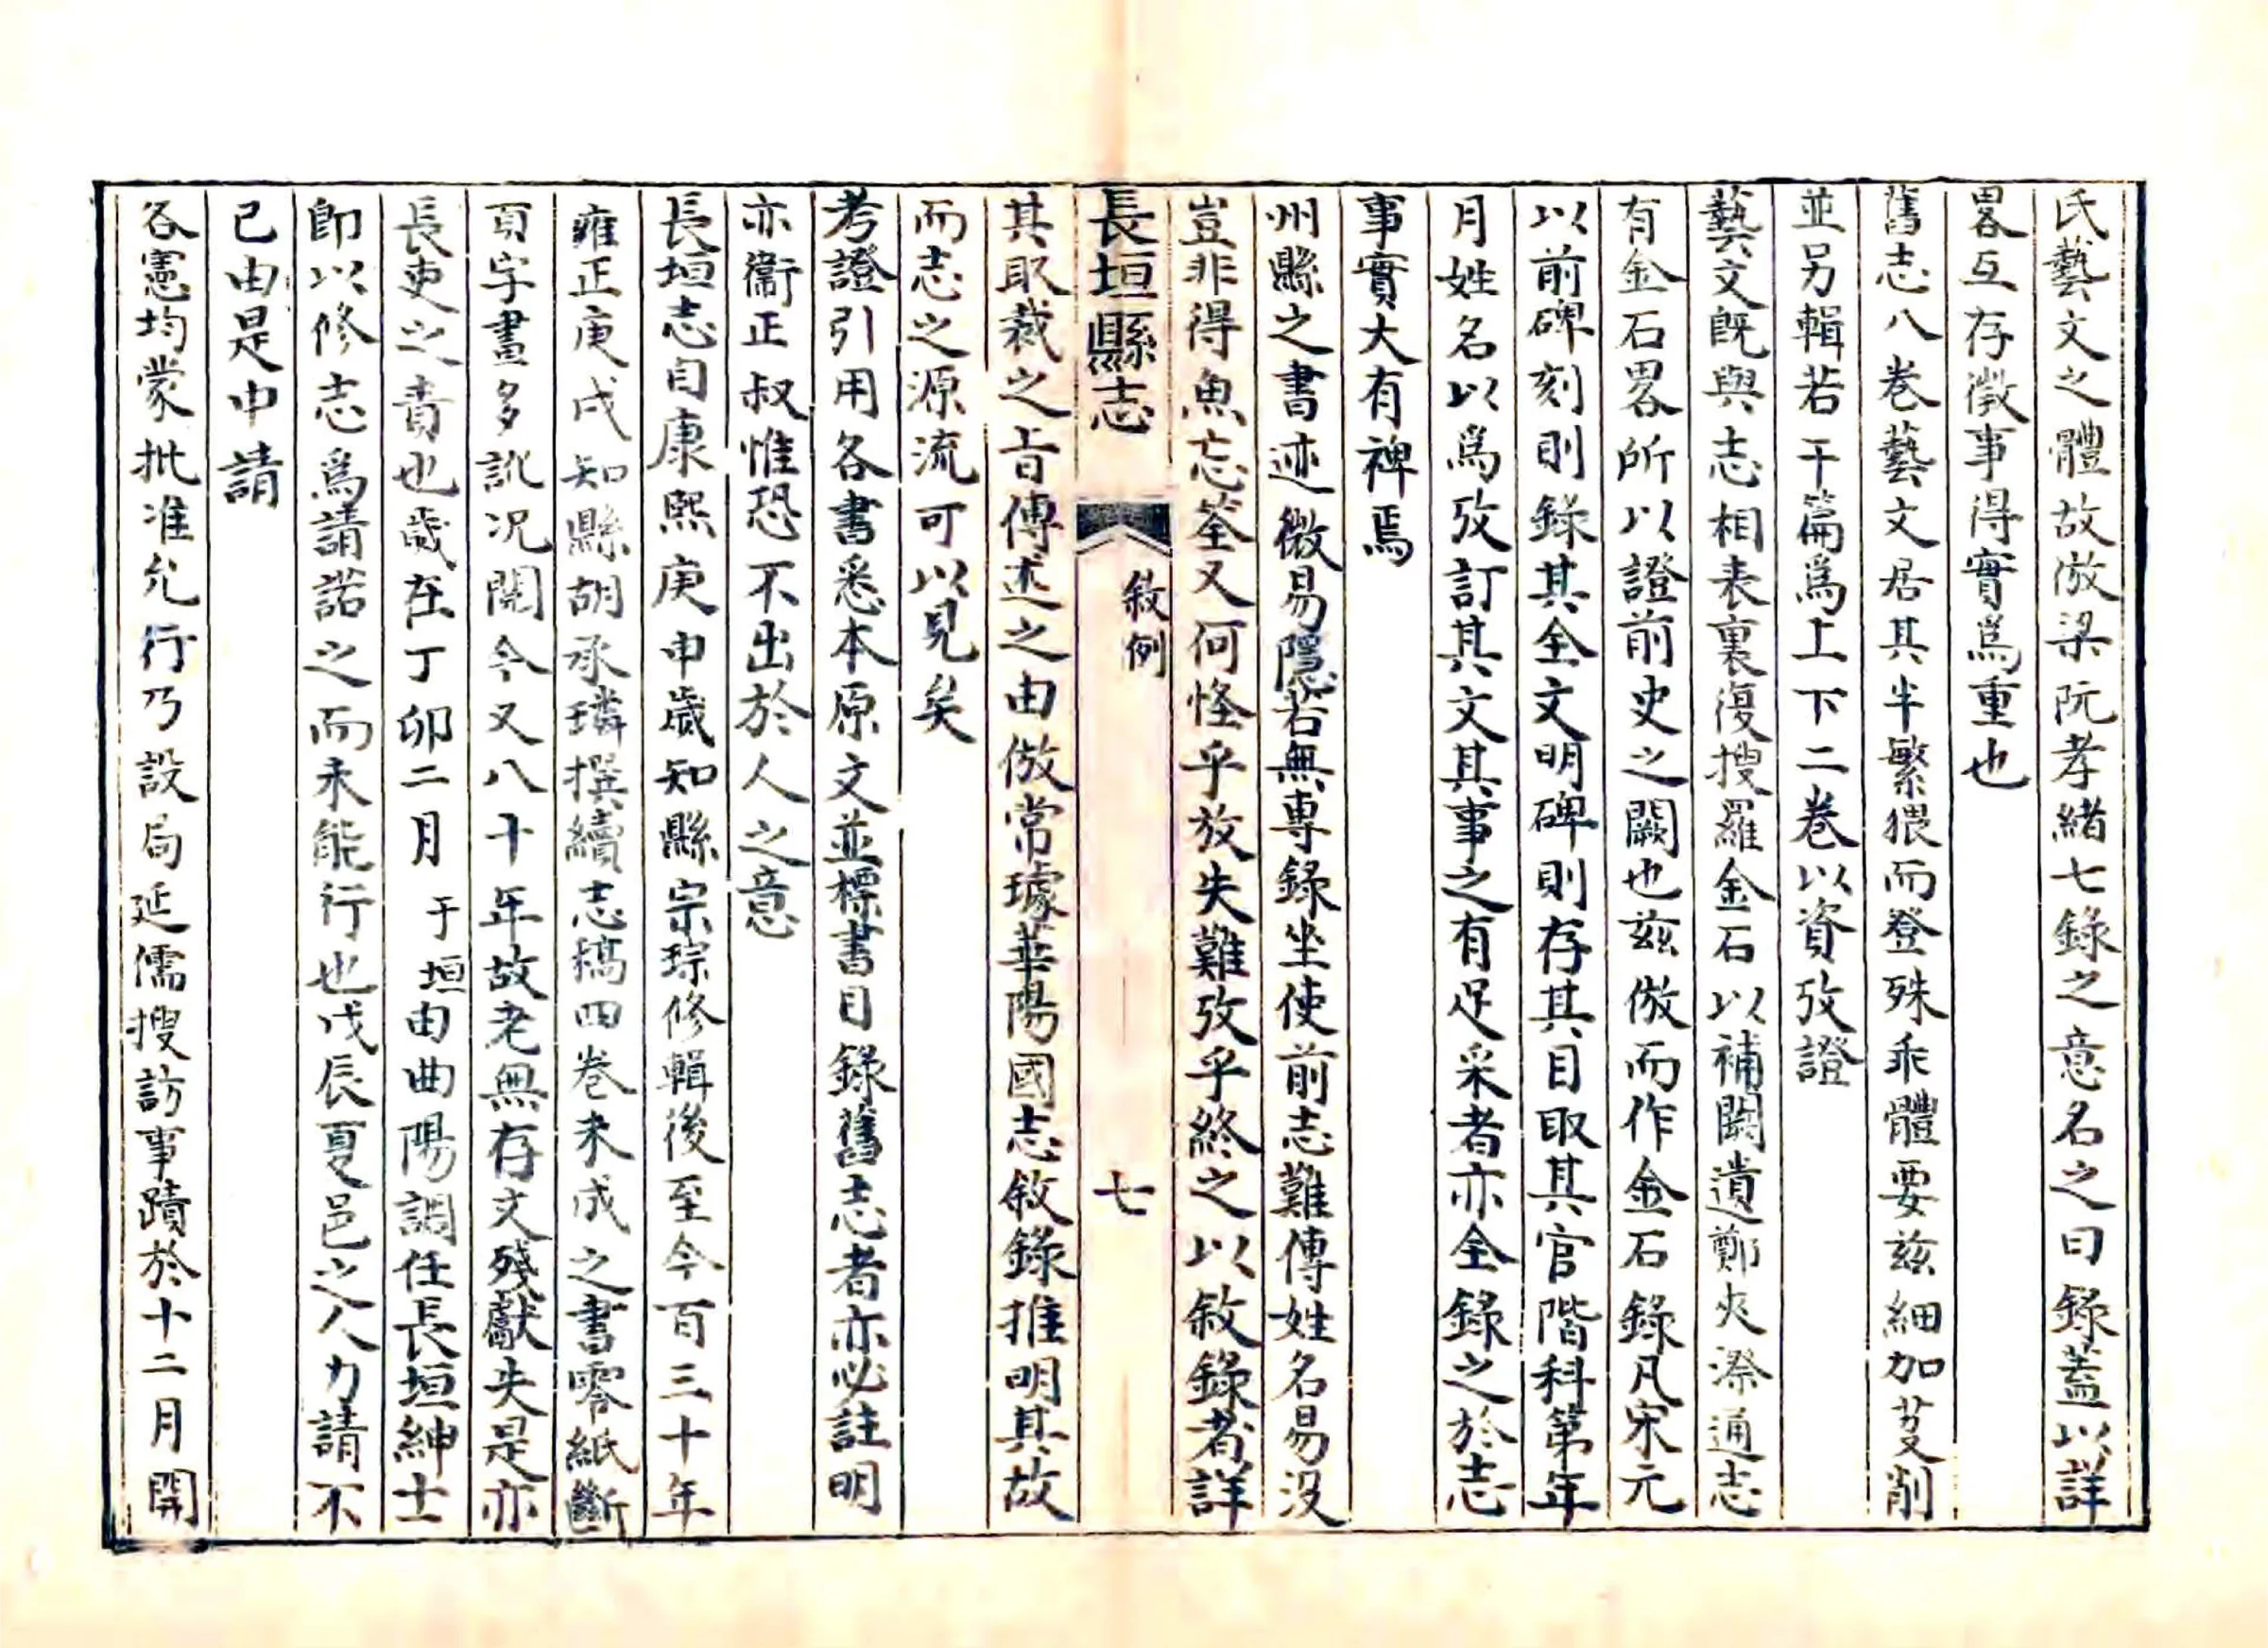 氏藝文之體故倣梁阮孝緒七錄之意名之曰錄蓋以詳
畧互存徵事得實爲重也
舊志八卷藝文居其半繁猥而登殊乖體要兹細加芟削
並另輯若干篇爲上下二卷以資攷證
藝文旣與志相表裏復搜羅金石以補闕遺鄭夾漈通志
有金石畧所以證前史之闕也兹倣而作金石錄凡宋元
以前碑刻則錄其全文明碑則存其目取其官階科第年
月姓名以爲攷訂其文其事之有足采者亦全錄之於志
事實大有裨焉
州縣之書迹微易隱若無專錄坐使前志難傳姓名易没
豈非得魚忘筌又何怪乎放失難攷乎終之以敘錄者詳
長垣縣志
敘例
七
其取裁之旨傳述之由倣常璩華陽國志敘錄推明其故
而志之源流可以見矣
考證引用各書悉本原文並標書目錄舊志者亦必註明
亦衞正叔惟恐不出於人之意
長垣志自康熙庚申歲知縣宗琮修輯後至今百三十年
雍正庚戌知縣胡承璘撰續志稿四卷未成之書零紙斷
頁字畫多訛況閱今又八十年故老無存文殘獻失是亦
長吏之責也歲在丁卯二月于垣由曲陽調任長垣紳士
卽以修志爲請諾之而未能行也戊辰夏邑之人力請不
已由是申請
各憲均蒙批准允行乃設局延儒搜訪事蹟於十二月開